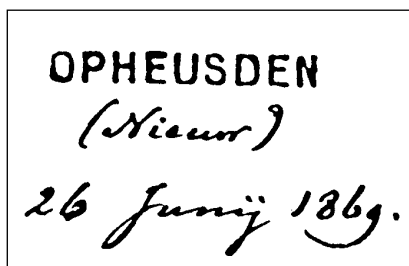 OPHEUSDEN
(Nieuw)
26 Junij 1869.